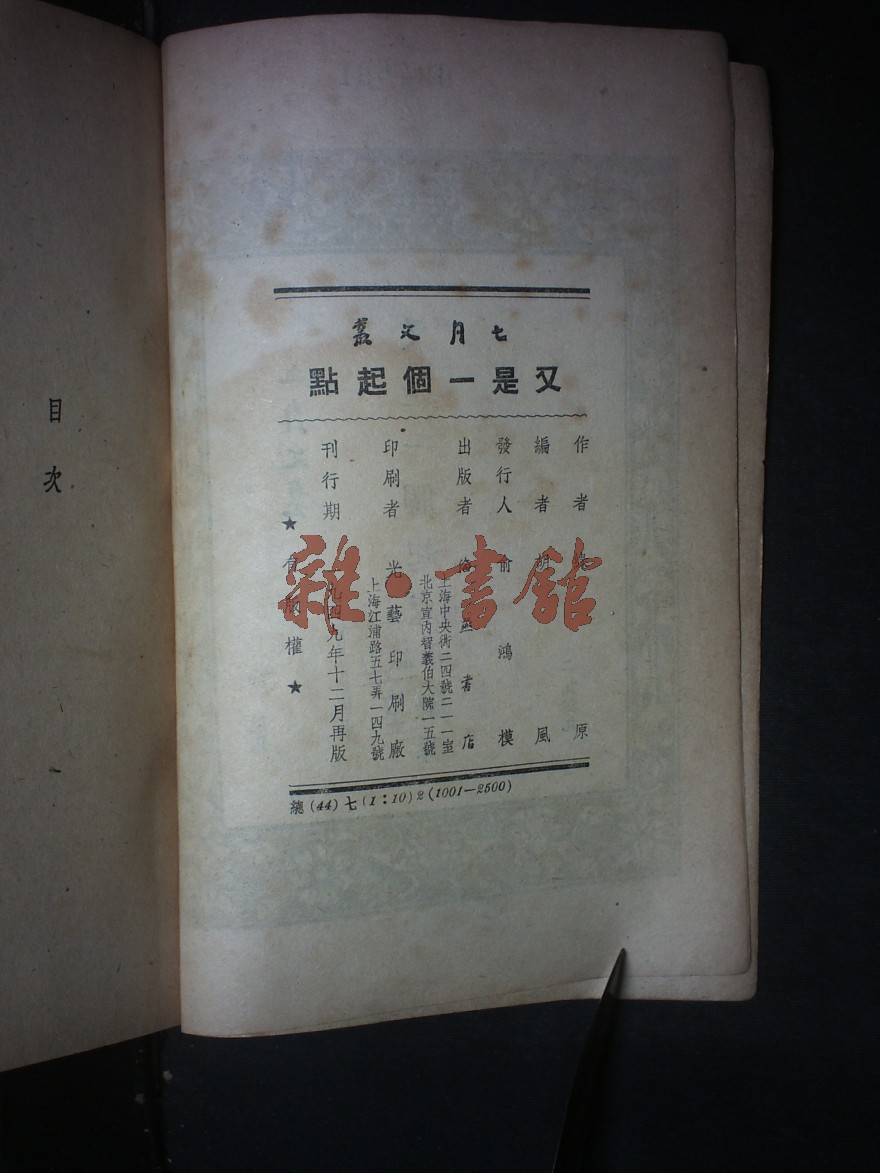 目次
七月文叢
又是一個起點
作者 原
編者 胡風
發行人 俞鴻模
出版者 書店
上海中央街二四號二一一室
北京宣內智義伯大院一五號
印刷者 光藝印刷廠
上海江浦路五七弄一四九號
刊行期 一九四九年十二月再版
★有版權★
總(44)七(1:10)2(1001—2500)
雜·書館